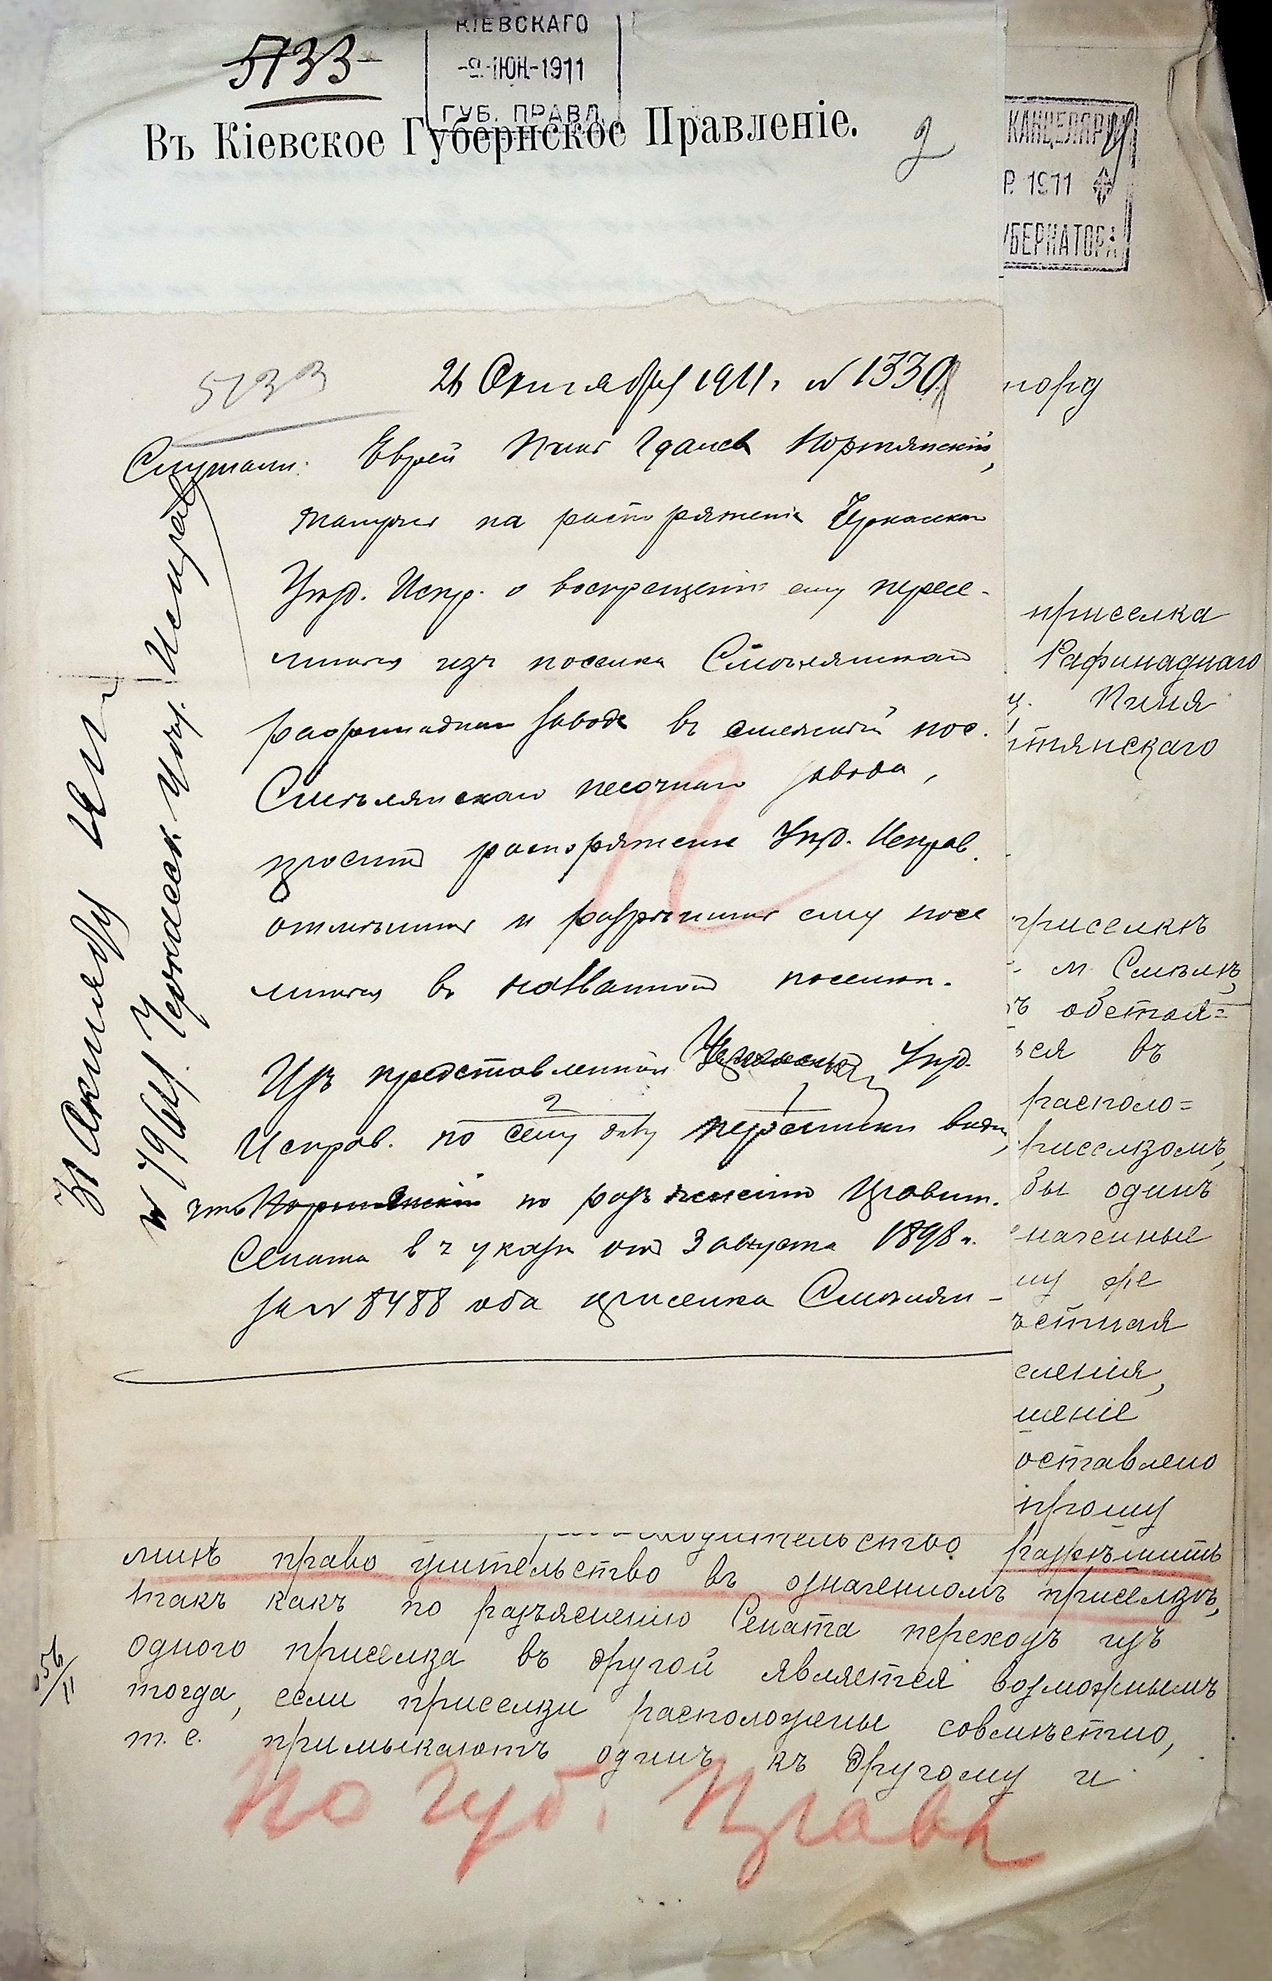 5733
КІЕВСКАГО
-9.ІЮН.-1911
ГУБ. ПРАВЛ.
Въ Кіевское Губернское Правленіе.
2
КАНЦЕЛЯР
Р. 1911
УБЕРНАТОРА
5733
26 Октября 1911 г. N 1330
Слушали: Еврей Пиня Гдалев Портянскій,
жалуясь на распоряженіе Черкасскаго
Уѣзд. Испр. о воспрещеніи ему пересе-
литься изъ поселка Смѣлянскаго
рафинаднаго завода въ смежный пос.
Смѣлянскаго песочнаго завода,
проситъ распоряженіе Уѣзд. Исправ.
отмѣнить и разрѣшить ему посе
литься въ названномъ поселкѣ.
Изъ представленной Черкасскимъ Уѣзд.
2 1
Исправ. по сему дѣлу переписки видно,
что Портянскій по разъясненію Правит.
Сената въ указѣ отъ 3 августа 1898 г.
за N 8488 оба приселка Смѣлян-
31 Октября 1911
N 7964 Черкасск. Уѣзд. Исправ
приселка
Рафинаднаго
Пиня
тянскаго
приселкѣ
м. Смѣлѣ,
обстоя=
ся въ
располо=
риселкомъ,
бы одинъ
наченные
му же
ѣстная
еленія,
шеніе
оставлено
прошу
ходительство разрѣшить
мнѣ право жительство въ означенномъ приселкѣ,
такъ какъ по разъясненію Сената переходъ изъ
одного приселка въ другой является возможнымъ
тогда, если приселки расположены совмѣстно,
т. е. примыкаютъ одинъ къ другому и
По Губ. Правл